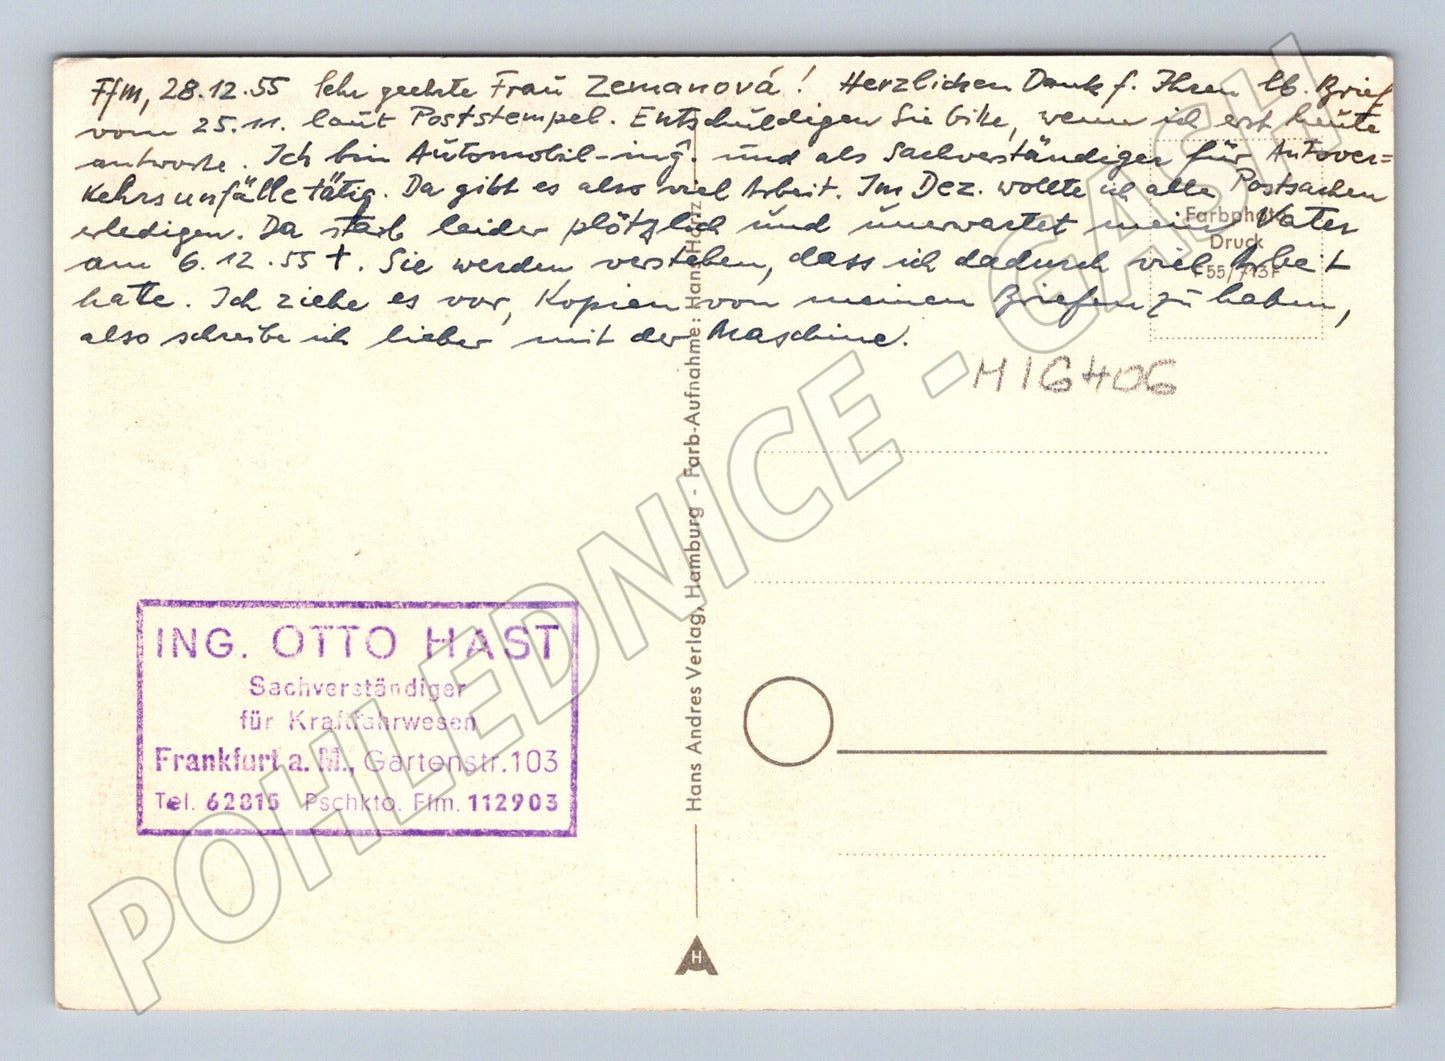 Ffm, 28.12.55 Sehr geehrte Frau Zemanová! Herzlichen Dank f. Ihren lb. Brief
vom 25.11. laut Poststempel. Entschuldigen Sie bitte, wenn ich erst heute
antworte. Ich bin Automobil-ing. und als Sachverständiger für Autover=
kehrsunfälle tätig. Da gibt es also viel Arbeit. Im Dez. wollte ich alle Postsachen
erledigen. Da starb leider plötzlich und unerwartet mein Vater
am 6.12.55 †. Sie werden verstehen, dass ich dadurch viel Arbeit
hatte. Ich ziehe es vor, Kopien von meinen Briefen zu haben,
also schreibe ich lieber mit der Maschine.
Farbphoto
Druck
55/713F
M16406
ING. OTTO HAST
Sachverständiger
für Kraftfahrwesen
Frankfurt a. M., Gartenstr. 103
Tel. 62815 Pschkto. Ffm. 112903
Hans Andres Verlag, Hamburg - Farb-Aufnahme: Hans Hartz
H
POHLEDNICE - GASH